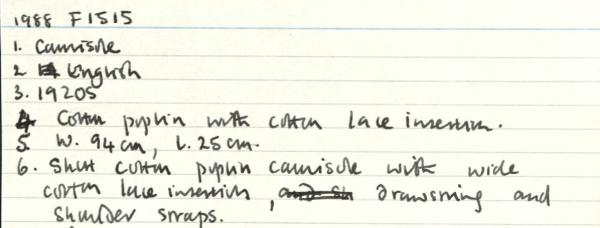 1988 F1515
1. Camisole
2 English
3. 1920s
4 Cotton poplin with cotton lace insertion.
5 W. 94cm, L. 25cm.
6. Short cotton poplin camisole with wide
cotton lace insertion, drawstring and
shoulder straps.